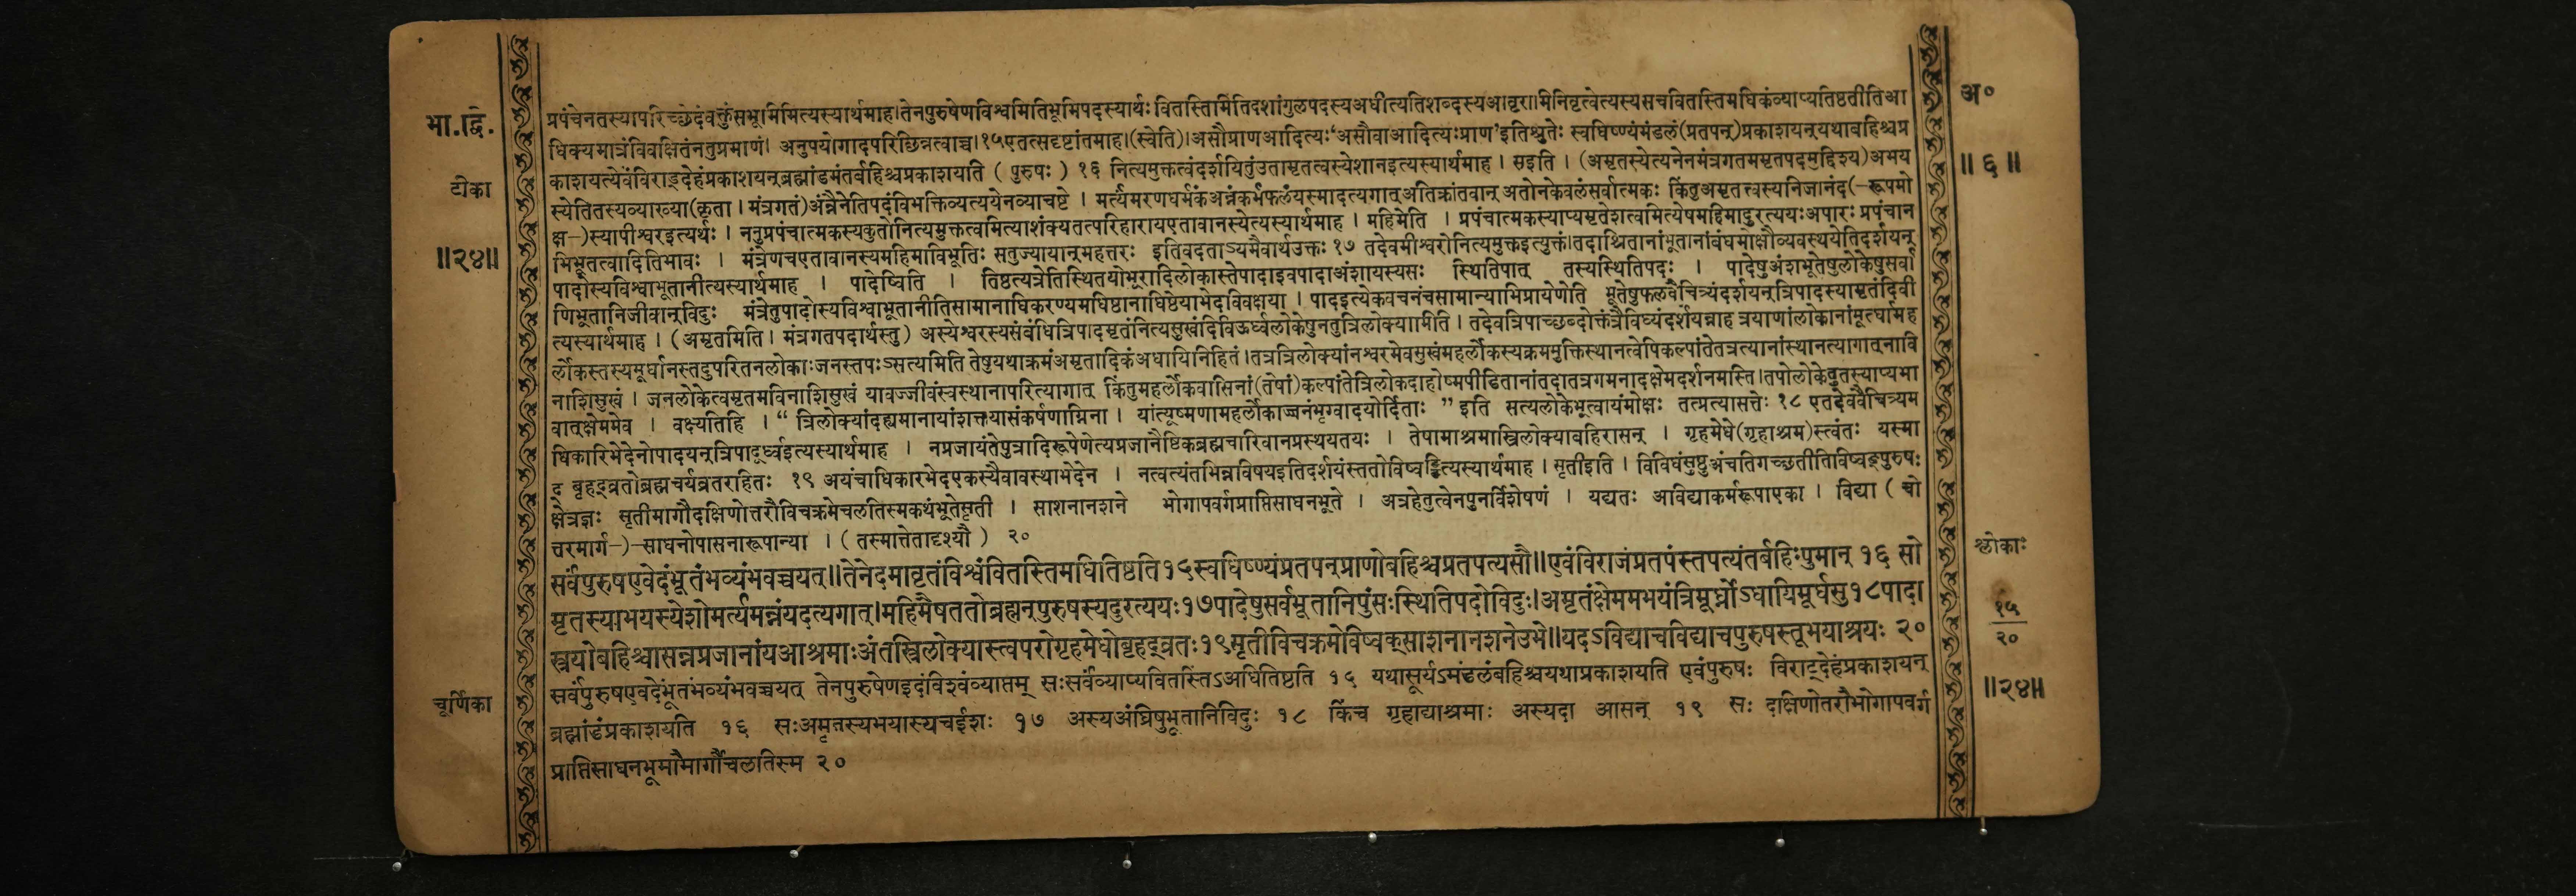 भा.द्वि.
टीका
॥२४॥
प्रपंचेनतस्यापरिच्छेदंवक्तुंसभूमिमित्यस्यार्थमाह।तेनपुरुषेणविश्वमितिभूमिपदस्यार्थः वितस्तिमितिदशांगुलपदस्यअधीत्यतिशब्दस्यआवृरा।मिनिवृत्वेत्यस्यसचवितस्तिमधिकंव्याप्यतिष्ठतीतिआ
धिक्यमात्रंविवक्षितंनतुप्रमाणं। अनुपयोगादपरिछिन्नत्वाच्च।१५एतत्सदृष्टांतमाह।(स्वेति)।असौप्राणआदित्यः‘असौवाआदित्यःप्राण’इतिश्रुतेः स्वधिष्ण्यंमंडलं(प्रतपन्)प्रकाशयन्यथाबहिश्चप्र
काशयत्येवंविराड्देहंप्रकाशयन्ब्रह्मांडमंतर्बहिश्चप्रकाशयति ( पुरुषः ) १६ नित्यमुक्तत्वंदर्शयितुंउतामृतत्वस्येशानइत्यस्यार्थमाह । सइति । (अमृतस्येत्यनेनमंत्रगतममृतपदमुद्दिश्य)अमय
स्येतितस्यव्याख्या(कृता । मंत्रगतं)अंन्नैनेतिपदंविभक्तिव्यत्ययेनव्याचष्टे । मर्त्यंमरणधर्मकंअन्नंकर्मफलंयस्मादत्यगात्अतिक्रांतवान् अतोनकेवलंसर्वात्मकः किंतुअमृतत्त्वस्यनिजानंद(-रूपमो
क्ष-)स्यापीश्वरइत्यर्थः । ननुप्रपंचात्मकस्यकुतोनित्यमुक्तत्वमित्याशंक्यतत्परिहारायएतावानस्येत्यस्यार्थमाह । महिमेति । प्रपंचात्मकस्याप्यमृतेशत्वमित्येषमहिमादुरत्ययःअपारः प्रपंचान
भिभूतत्वादितिभावः । मंत्रेणचएतावानस्यमहिमाविभूतिः सतुज्यायान्महत्तरः इतिवदताऽयमैवार्थउक्तः १७ तदेवमीश्वरोनित्यमुक्तइत्युक्तं।तदाश्रितानांभूतानांबंधमोक्षौव्यवस्थयेतिदर्शयन्
पादोस्यविश्वाभूतानीत्यस्यार्थमाह । पादेष्विति । तिष्ठत्यत्रेतिस्थितयोभूरादिलोकास्तेपादाइवपादाअंशायस्यसः स्थितिपात् तस्यस्थितिपदः । पादेषुअंशभूतेषुलोकेषुसर्वा
णिभूतानिजीवान्विदुः मंत्रेतुपादोस्यविश्वाभूतानीतिसामानाधिकरण्यमधिष्ठानाधिष्ठेयाभेदविवक्षया । पादइत्येकवचनंचसामान्याभिप्रायेणेति भूतेषुफलवैचित्र्यंदर्शयन्त्रिपादस्यामृतंदिवी
त्यस्यार्थमाह । (अमृतमिति । मंत्रगतपदार्थस्तु) अस्येश्वरस्यसंबंधित्रिपादमृतंनित्यसुखंदिविऊर्ध्वलोकेषुनतुत्रिलोक्यामिति । तदेवत्रिपाच्छब्दोक्तंत्रैविध्यंदर्शयन्नाह त्रयाणांलोकानांमूर्त्धामह
र्लोकस्तस्यमूर्धानस्तदुपरितनलोकाःजनस्तपःऽसत्यमिति तेषुयथाक्रमंअमृतादिकंअधायिनिहितं।तत्रत्रिलोक्यांनश्वरमेवसुखंमहर्लोकस्यक्रममुक्तिस्थानत्वेपिकल्पांतेतत्रत्यानांस्थानत्यागात्नावि
नाशिसुखं । जनलोकेत्वमृतमविनाशिसुखं यावज्जीवंस्वस्थानापरित्यागात् किंतुमहर्लोकवासिनां(तेषां)कल्पांतेत्रिलोकदाहोष्मपीडितानांतदातत्रगमनादक्षेमदर्शनमस्ति।तपोलोकेतुतस्याप्यमा
वात्क्षेममेव । वक्ष्यतिहि । “ त्रिलोक्यांदह्यमानायांशक्तयासंकर्षणाग्निना । यांत्यूष्मणामहर्लोकाज्जनंभृग्वादयोर्दिताः ” इति सत्यलोकेभूत्वायंमोक्षः तत्प्रत्यासत्तेः १८ एतदेववैचित्र्यम
धिकारिभेदेनोपादयन्त्रिपादूर्ध्वइत्यस्यार्थमाह । नप्रजायंतेपुत्रादिरूपेणेत्यप्रजानैष्टिकब्रह्मचारिवानप्रस्थयतयः । तेषामाश्रमास्त्रिलोक्याबहिरासन् । गृहमेधे(गृहाश्रम)स्त्वंतः यस्मा
द् बृहद्व्रतोब्रह्मचर्यव्रतरहितः १९ अयंचाधिकारभेदएकस्यैवावस्थाभेदेन । नत्वत्यंतभिन्नविषयइतिदर्शयंस्ततोविष्वङ्ङित्यस्यार्थमाह । सृतीइति । विविधंसुष्ठुअंचतिगच्छतीतिविष्वङ्पुरुषः
क्षेत्रज्ञः सृतीमार्गौदक्षिणोत्तरौविचक्रमेचलतिस्मकथंभूतेसृती । साशनानशने भोगापवर्गप्राप्तिसाधनभूते । अत्रहेतुत्वेनपुनर्विशेषणं । यद्यतः अविद्याकर्मरूपाएका । विद्या ( चो
त्तरमार्ग-)-साधनोपासनारूपान्या । ( तस्मात्तेतादृश्यौ ) २०
सर्वंपुरुषएवेदंभूतंभव्यंभवच्चयत्॥तेनेदमावृतंविश्वंवितस्तिमधितिष्ठति१५स्वधिष्ण्यंप्रतपन्प्राणोबहिश्चप्रतपत्यसौ॥एवंविराजंप्रतपंस्तपत्यंतर्बहिःपुमान् १६ सो
मृतस्याभयस्येशोमर्त्यमन्नंयदत्यगात्।महिमैषततोब्रह्मन्पुरुषस्यदुरत्ययः१७पादेषुसर्वभूतानिपुंसःस्थितिपदोविदुः।अमृतंक्षेममभयंत्रिमूर्ध्नोऽधायिमूर्धसु१८पादा
स्त्रयोबहिश्चासन्नप्रजानांयआश्रमाःअंतस्त्रिलोक्यास्त्वपरोगृहमेधोबृहद्व्रतः१९सृतीविचक्रमेविष्वक्साशनानशनेउभे॥यदऽविद्याचविद्याचपुरुषस्तूभयाश्रयः २०
सर्वंपुरुषएवदेंभूतंभव्यंभवच्चयत् तेनपुरुषेणइदंविश्वंव्याप्तम् सःसर्वंव्याप्यवितस्तिंऽअधितिष्ठति १५ यथासूर्यऽमंडलंबहिश्चयथाप्रकाशयति एवंपुरुषः विराट्देहंप्रकाशयन्
ब्रह्मांडंप्रकाशयति १६ सःअमृतस्यभयास्यचईशः १७ अस्यअंघ्रिषुभूतानिविदुः १८ किंच गृहाद्याश्रमाः अस्यदा आसन् १९ सः दक्षिणोतरौभोगापवर्ग
प्राप्तिसाधनभूमौमार्गौचलतिस्म २०
चूर्णिका
अ०
॥६॥
श्लोकाः
१५
२०
॥२४॥